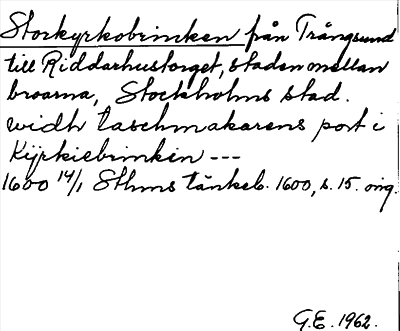 Storkyrkobrinken från Trångsund
till Riddarhustorget, staden mellan
broarna, Stockholms stad.
widh taschmakarens port i
Kÿrkiebrinkin ---
1600 14/1 Sthms tänkeb. 1600, s. 15. orig.
G.E. 1962.